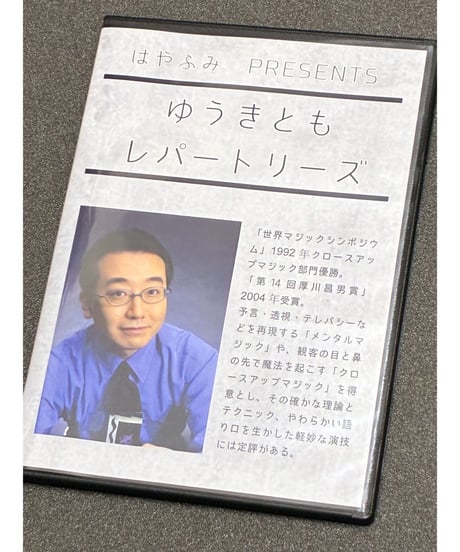 はやふみ PRESENTS
ゆうきとも
レパートリーズ
「世界マジックシンポジウ
ム」1992年クロースアッ
プマジック部門優勝。
「第14回厚川昌男賞」
2004年受賞。
予言・透視・テレパシーな
どを再現する「メンタルマ
ジック」や、観客の目と鼻
の先で魔法を起こす「クロ
ースアップマジック」を得
意とし、その確かな理論と
テクニック、やわらかい語
り口を生かした軽妙な演技
には定評がある。